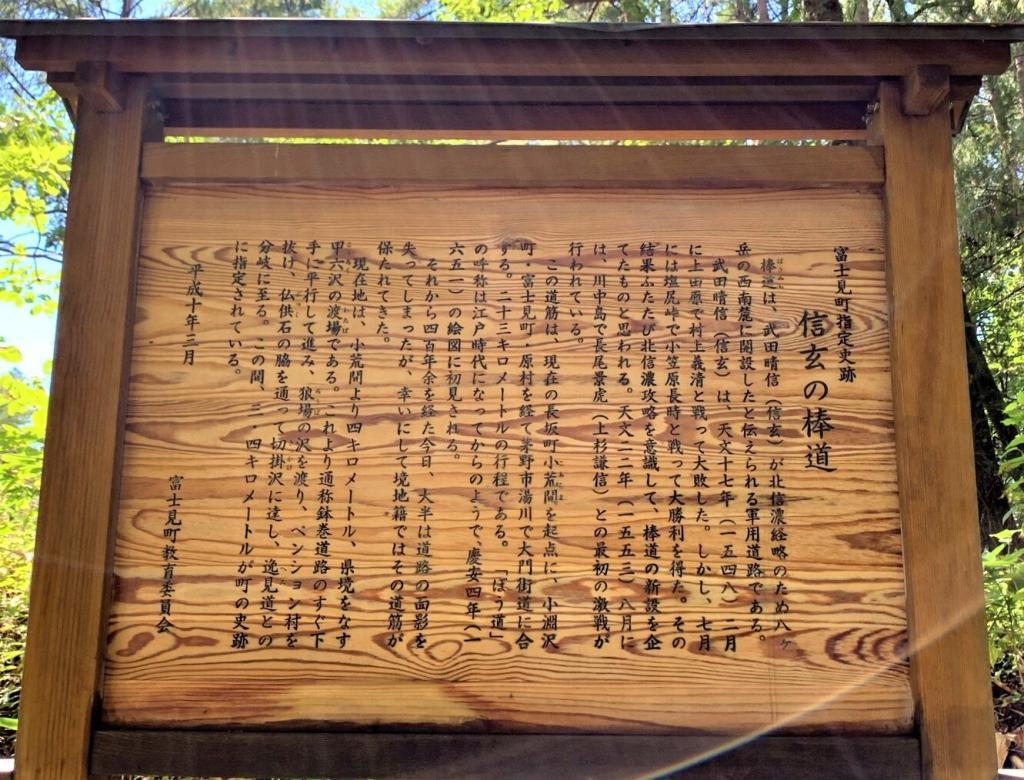 富士見町指定史跡
信玄の棒道
棒道は、武田晴信（信玄）が北信濃経略のため八ヶ
岳の西南麓に開設したと伝えられる軍用道路である。
武田晴信（信玄）は、天文十七年（一五四八）二月
に上田原で村上義清と戦って大敗した。しかし、七月
には塩尻峠で小笠原長時と戦って大勝利を得た。その
結果ふたたび北信濃攻略を意識して、棒道の新設を企
てたものと思われる。天文二二年（一五五三）八月に
は、川中島で長尾景虎（上杉謙信）との最初の激戦が
行われている。
この道筋は、現在の長坂町小荒間を起点に、小淵沢
町、富士見町、原村を経て茅野市湯川で大門街道に合
する。二十三キロメートルの行程である。「ぼう道」
の呼称は江戸時代になってからのようで、慶安四年（一
六五一）の絵図に初見される。
それから四百年余を経た今日、大半は道路の面影を
失ってしまったが、幸いにして境地籍ではその道筋が
保たれてきた。
現在地は、小荒間より四キロメートル、県境をなす
甲六沢の渡場である。これより通称鉢巻道路のすぐ下
手に平行して進み、狼場の沢を渡り、ペンション村を
抜け、仏供石の脇を通って切掛沢に達し、逸見道との
分岐に至る。この間、三．四キロメートルが町の史跡
に指定されている。
平成十年三月
富士見町教育委員会